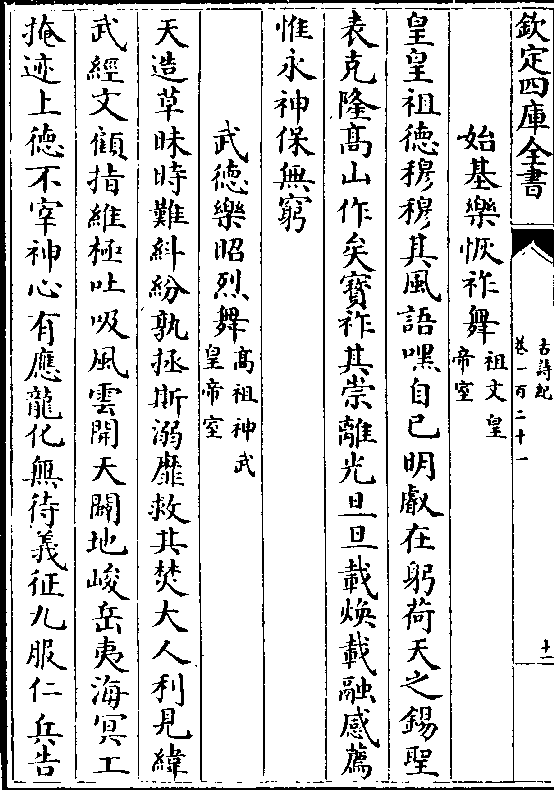 欽定四庫全書
古詩紀
卷一百二十一
十二
始基樂恢祚舞祖文皇
帝室
皇皇祖德穆穆其風語嘿自已明叡在躬荷天之錫聖
表克隆高山作矣寳祚其崇離光旦旦載煥載融感薦
惟永神保無窮
武德樂昭烈舞高祖神武
皇帝室
天造草昧時難糾紛孰拯斯溺靡救其焚大人利見緯
武經文顧指維極吐吸風雲開天闢地峻岳夷海冥工
掩迹上德不宰神心有應龍化無待義征九服仁兵告